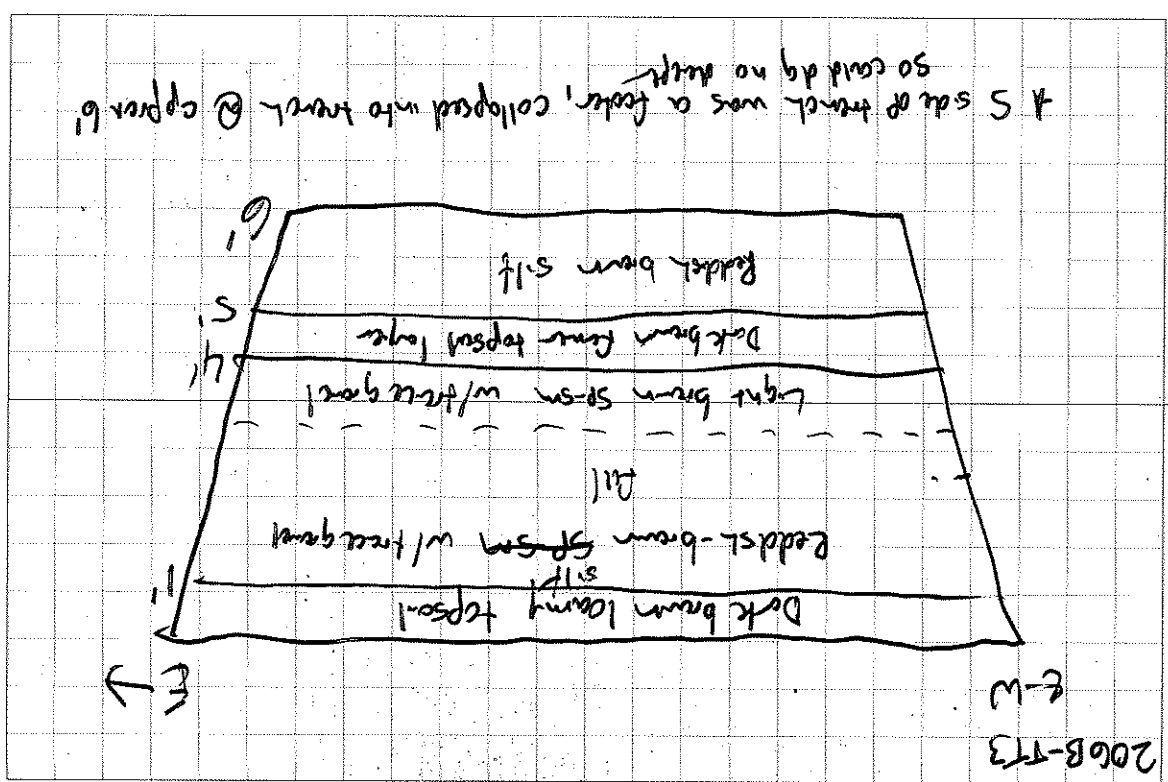 206B-TT3
E-W
E →
Dark brown loamy topsoil
1'
silt
Reddish-brown SP-SM w/ trace gravel
fill
Light brown SP-SM w/ trace gravel
4'
Dark brown former topsoil layer
5'
Reddish brown silt
6'
* S side of trench was a, collapsed into trench @ approx 6'
so could dig no deeper